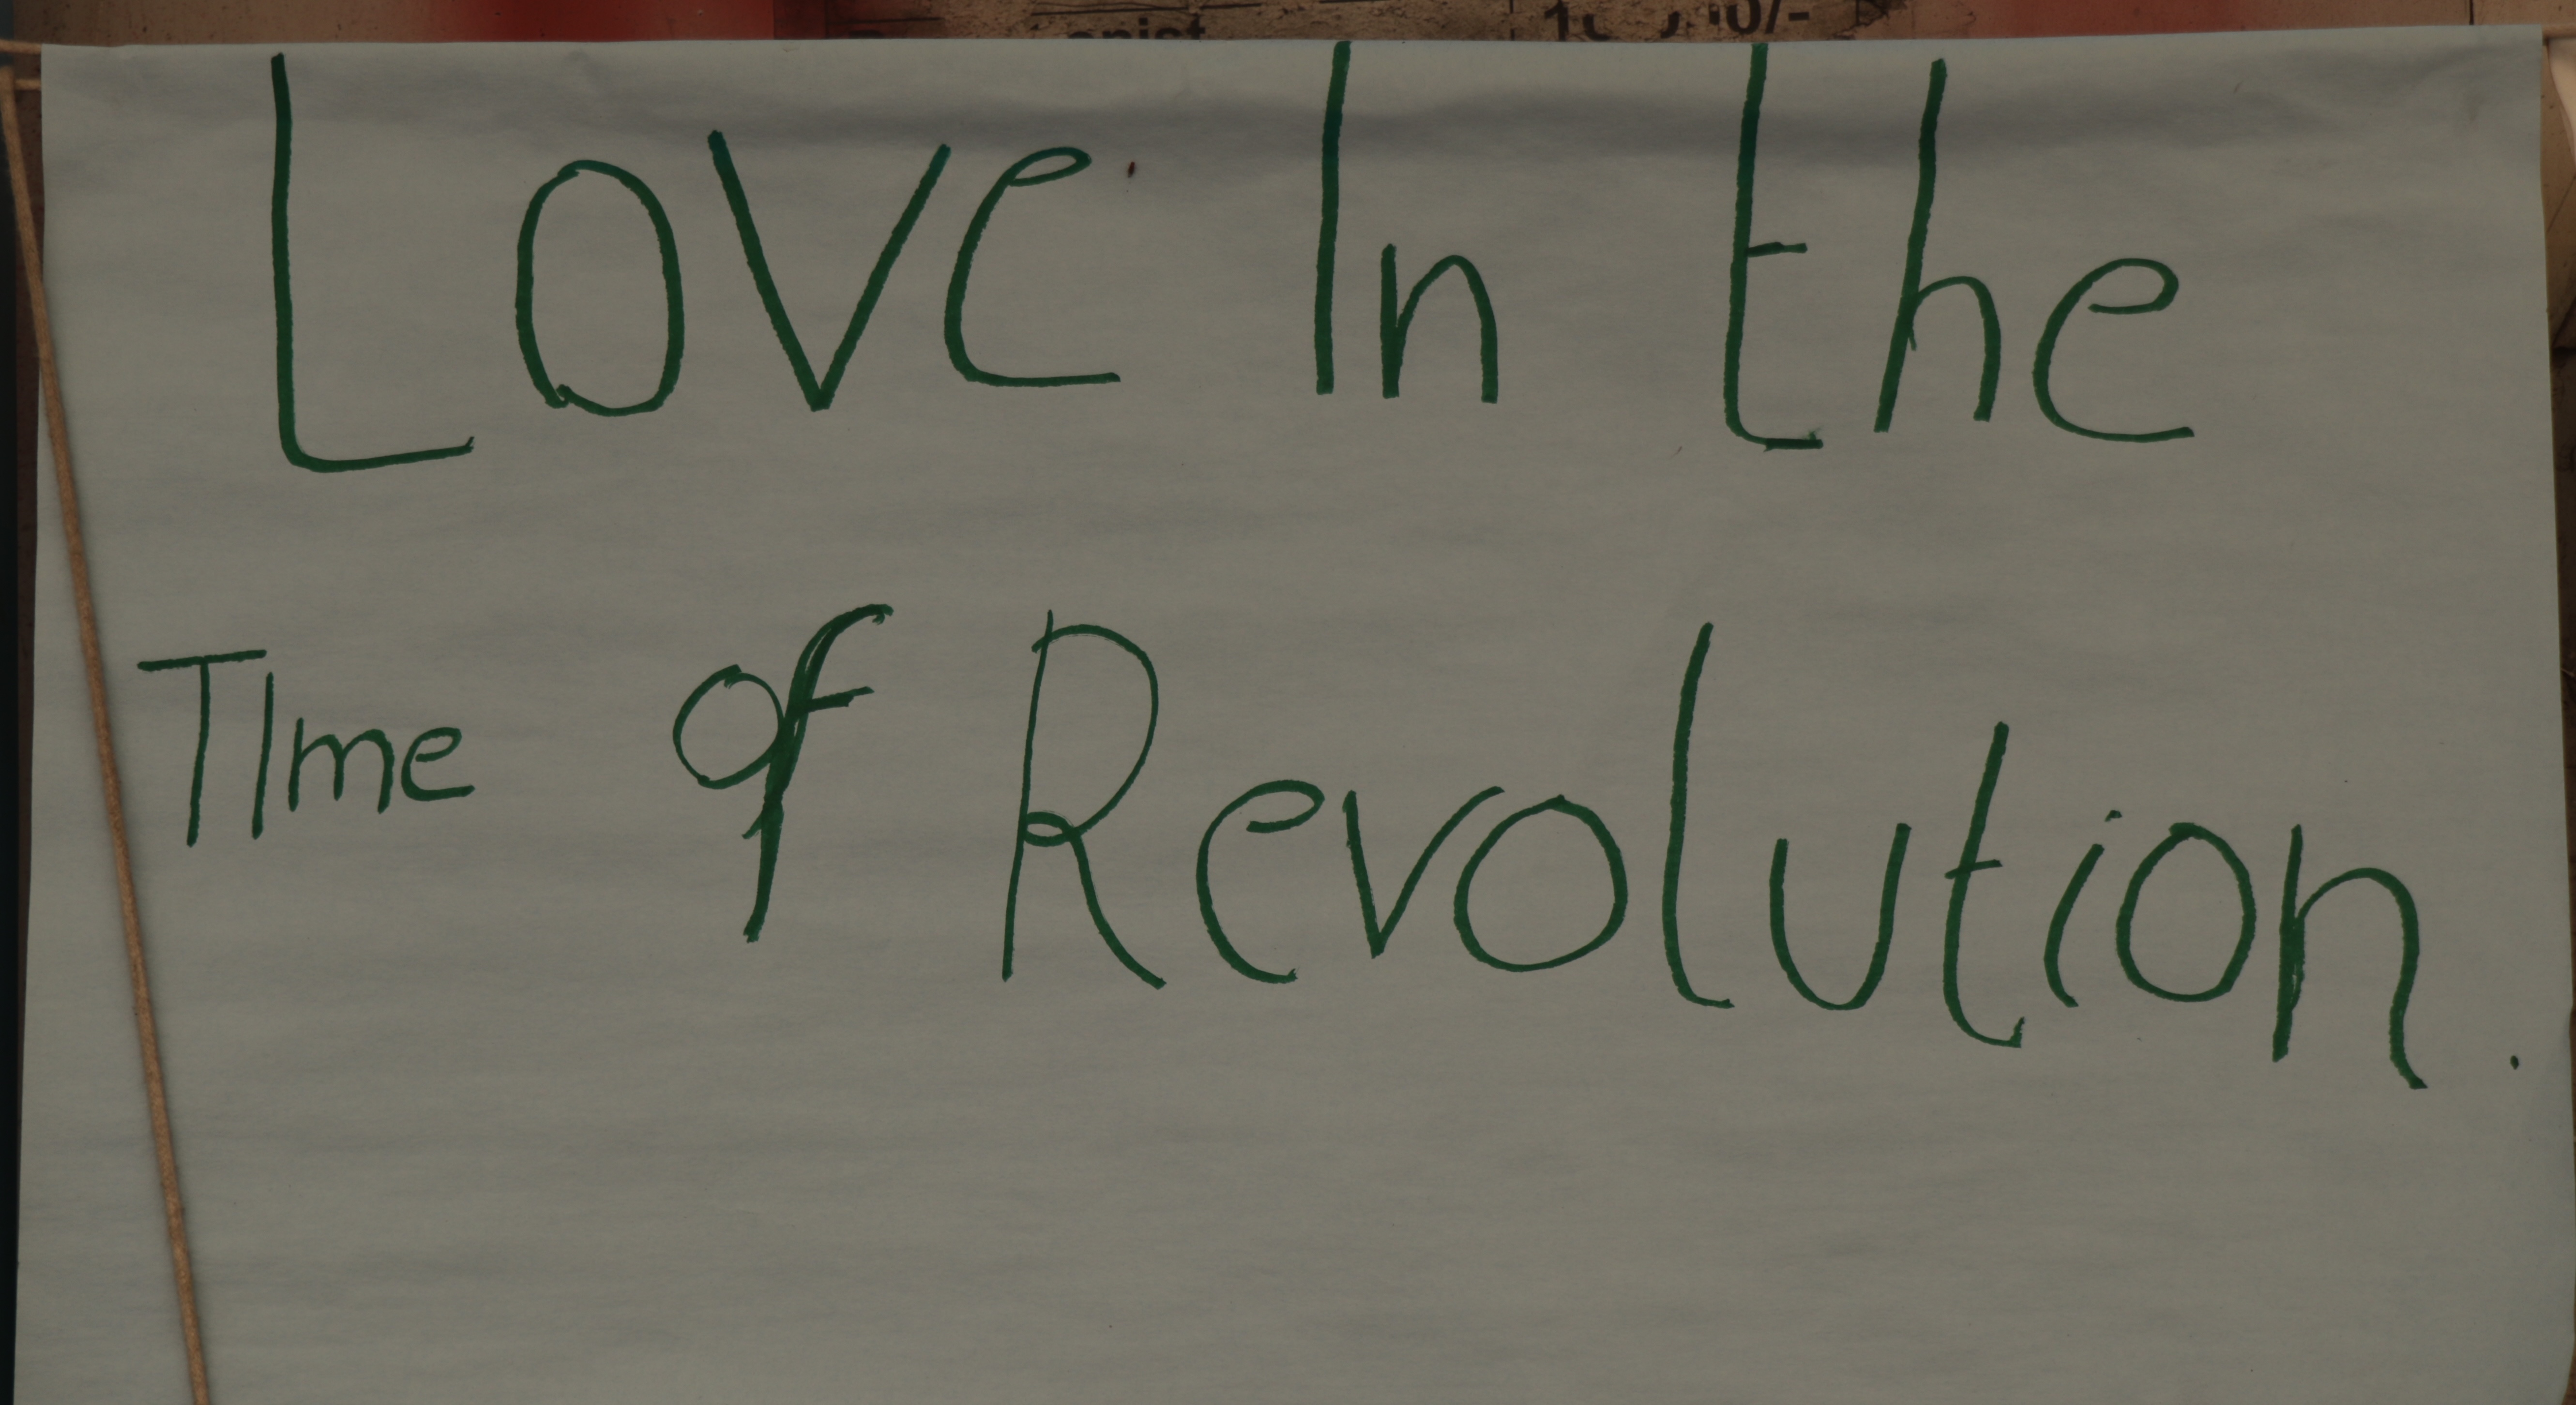 Love In the
TIme of Revolution.